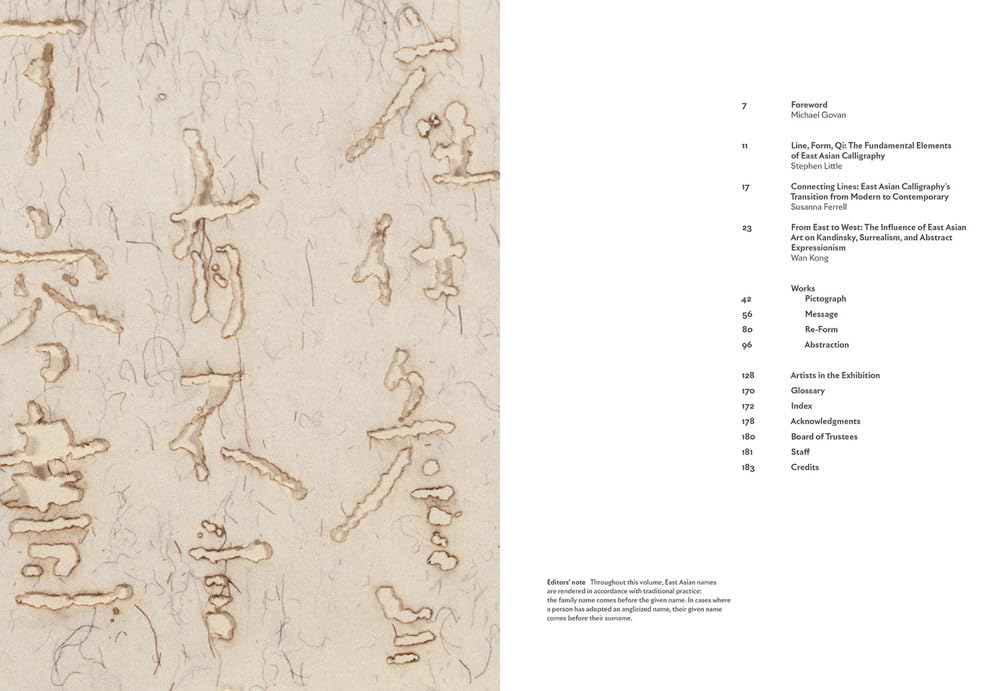 7 Foreword
Michael Govan
11 Line, Form, Qi: The Fundamental Elements
of East Asian Calligraphy
Stephen Little
17 Connecting Lines: East Asian Calligraphy's
Transition from Modern to Contemporary
Susanna Ferrell
23 From East to West: The Influence of East Asian
Art on Kandinsky, Surrealism, and Abstract
Expressionism
Wan Kong
Works
42 Pictograph
56 Message
80 Re-Form
96 Abstraction
128 Artists in the Exhibition
170 Glossary
172 Index
178 Acknowledgments
180 Board of Trustees
181 Staff
183 Credits
Editors' note Throughout this volume, East Asian names
are rendered in accordance with traditional practice:
the family name comes before the given name. In cases where
a person has adopted an anglicized name, their given name
comes before their surname.